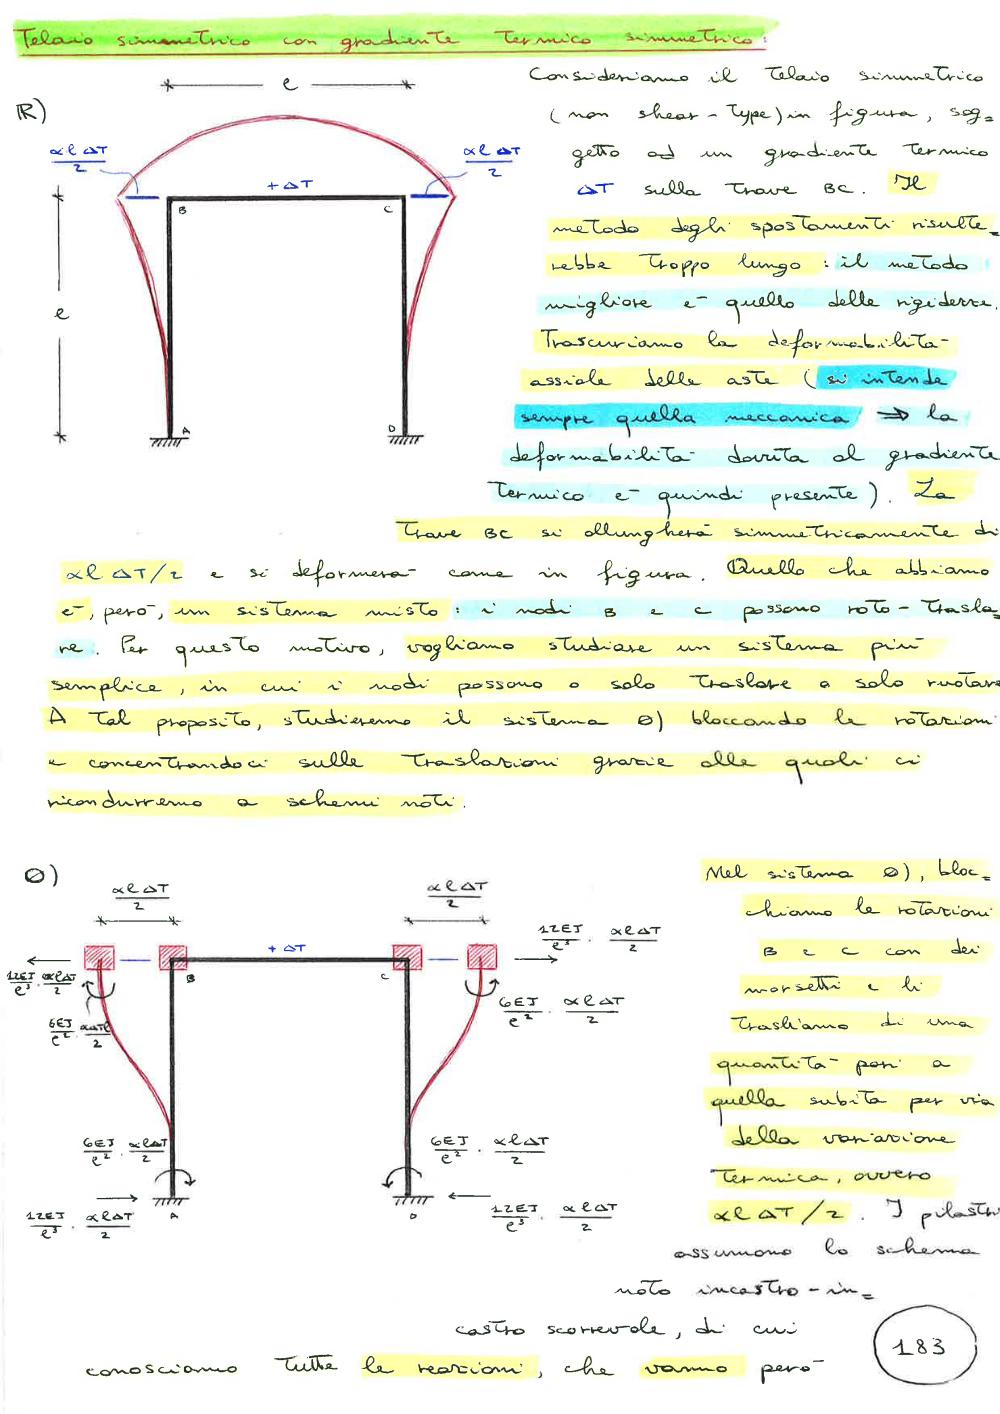 Telaio simmetrico con gradiente termico simmetrico:
Consideriamo il telaio simmetrico
(non shear-type) in figura, sog=
getto ad un gradiente termico
ΔT sulla trave BC. Il
metodo degli spostamenti risulte=
rebbe troppo lungo: il metodo
migliore e- quello delle rigidezze.
Trascuriamo la deformabilita-
assiale delle aste (si intende
sempre quella meccanica ⇒ la
deformabilita- dovuta al gradiente
termico e- quindi presente). La
R)
l
αlΔT/2
αlΔT/2
+ΔT
B
C
l
A
D
trave BC si allungherà simmetricamente di
αlΔT/2 e si deformera- come in figura. Quello che abbiamo
e-, pero-, un sistema misto: i nodi B e C possono roto-trasla=
re. Per questo motivo, vogliamo studiare un sistema piu-
semplice, in cui i nodi possono o solo traslare o solo ruotare
A tal proposito, studieremo il sistema 0) bloccando le rotazioni
e concentrandoci sulle traslazioni grazie alle quali ci
ricondurremo a schemi noti.
0)
αlΔT/2
αlΔT/2
12EJ/l³ · αlΔT/2
+ΔT
B
C
12EJ/l³ · αlΔT/2
6EJ/l² · αΔTl/2
6EJ/l² · αlΔT/2
6EJ/l² · αlΔT/2
6EJ/l² · αlΔT/2
A
D
12EJ/l³ · αlΔT/2
12EJ/l³ · αlΔT/2
Nel sistema 0), bloc=
chiamo le rotazioni
B e C con dei
morsetti e li
trasliamo di una
quantita- pari a
quella subita per via
della variazione
termica, ovvero
αlΔT/2. I pilastri
assumono lo schema
noto incastro-in=
castro scorrevole, di cui
conosciamo tutte le reazioni, che vanno pero-
183